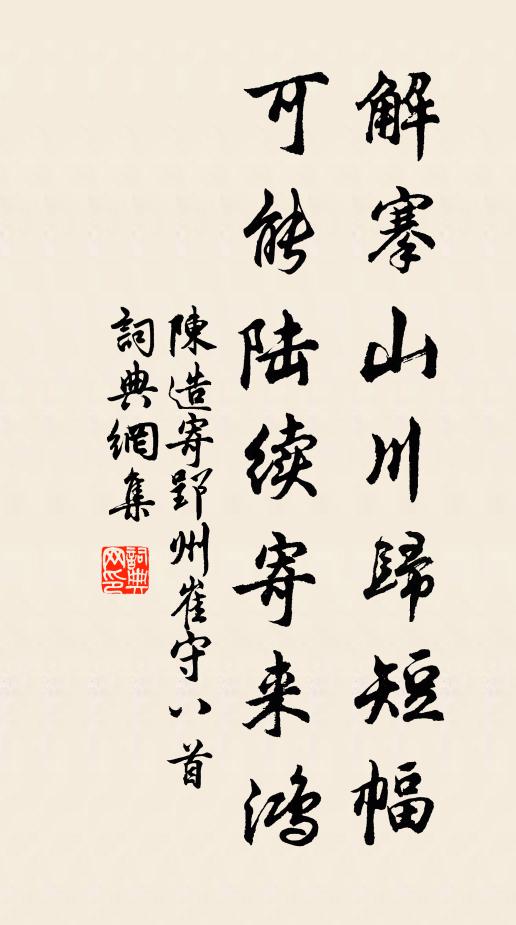 解搴山川歸短幅
可能陆续寄来鸿
陳造寄郢州崔守八首
詞典網集
詞典网印